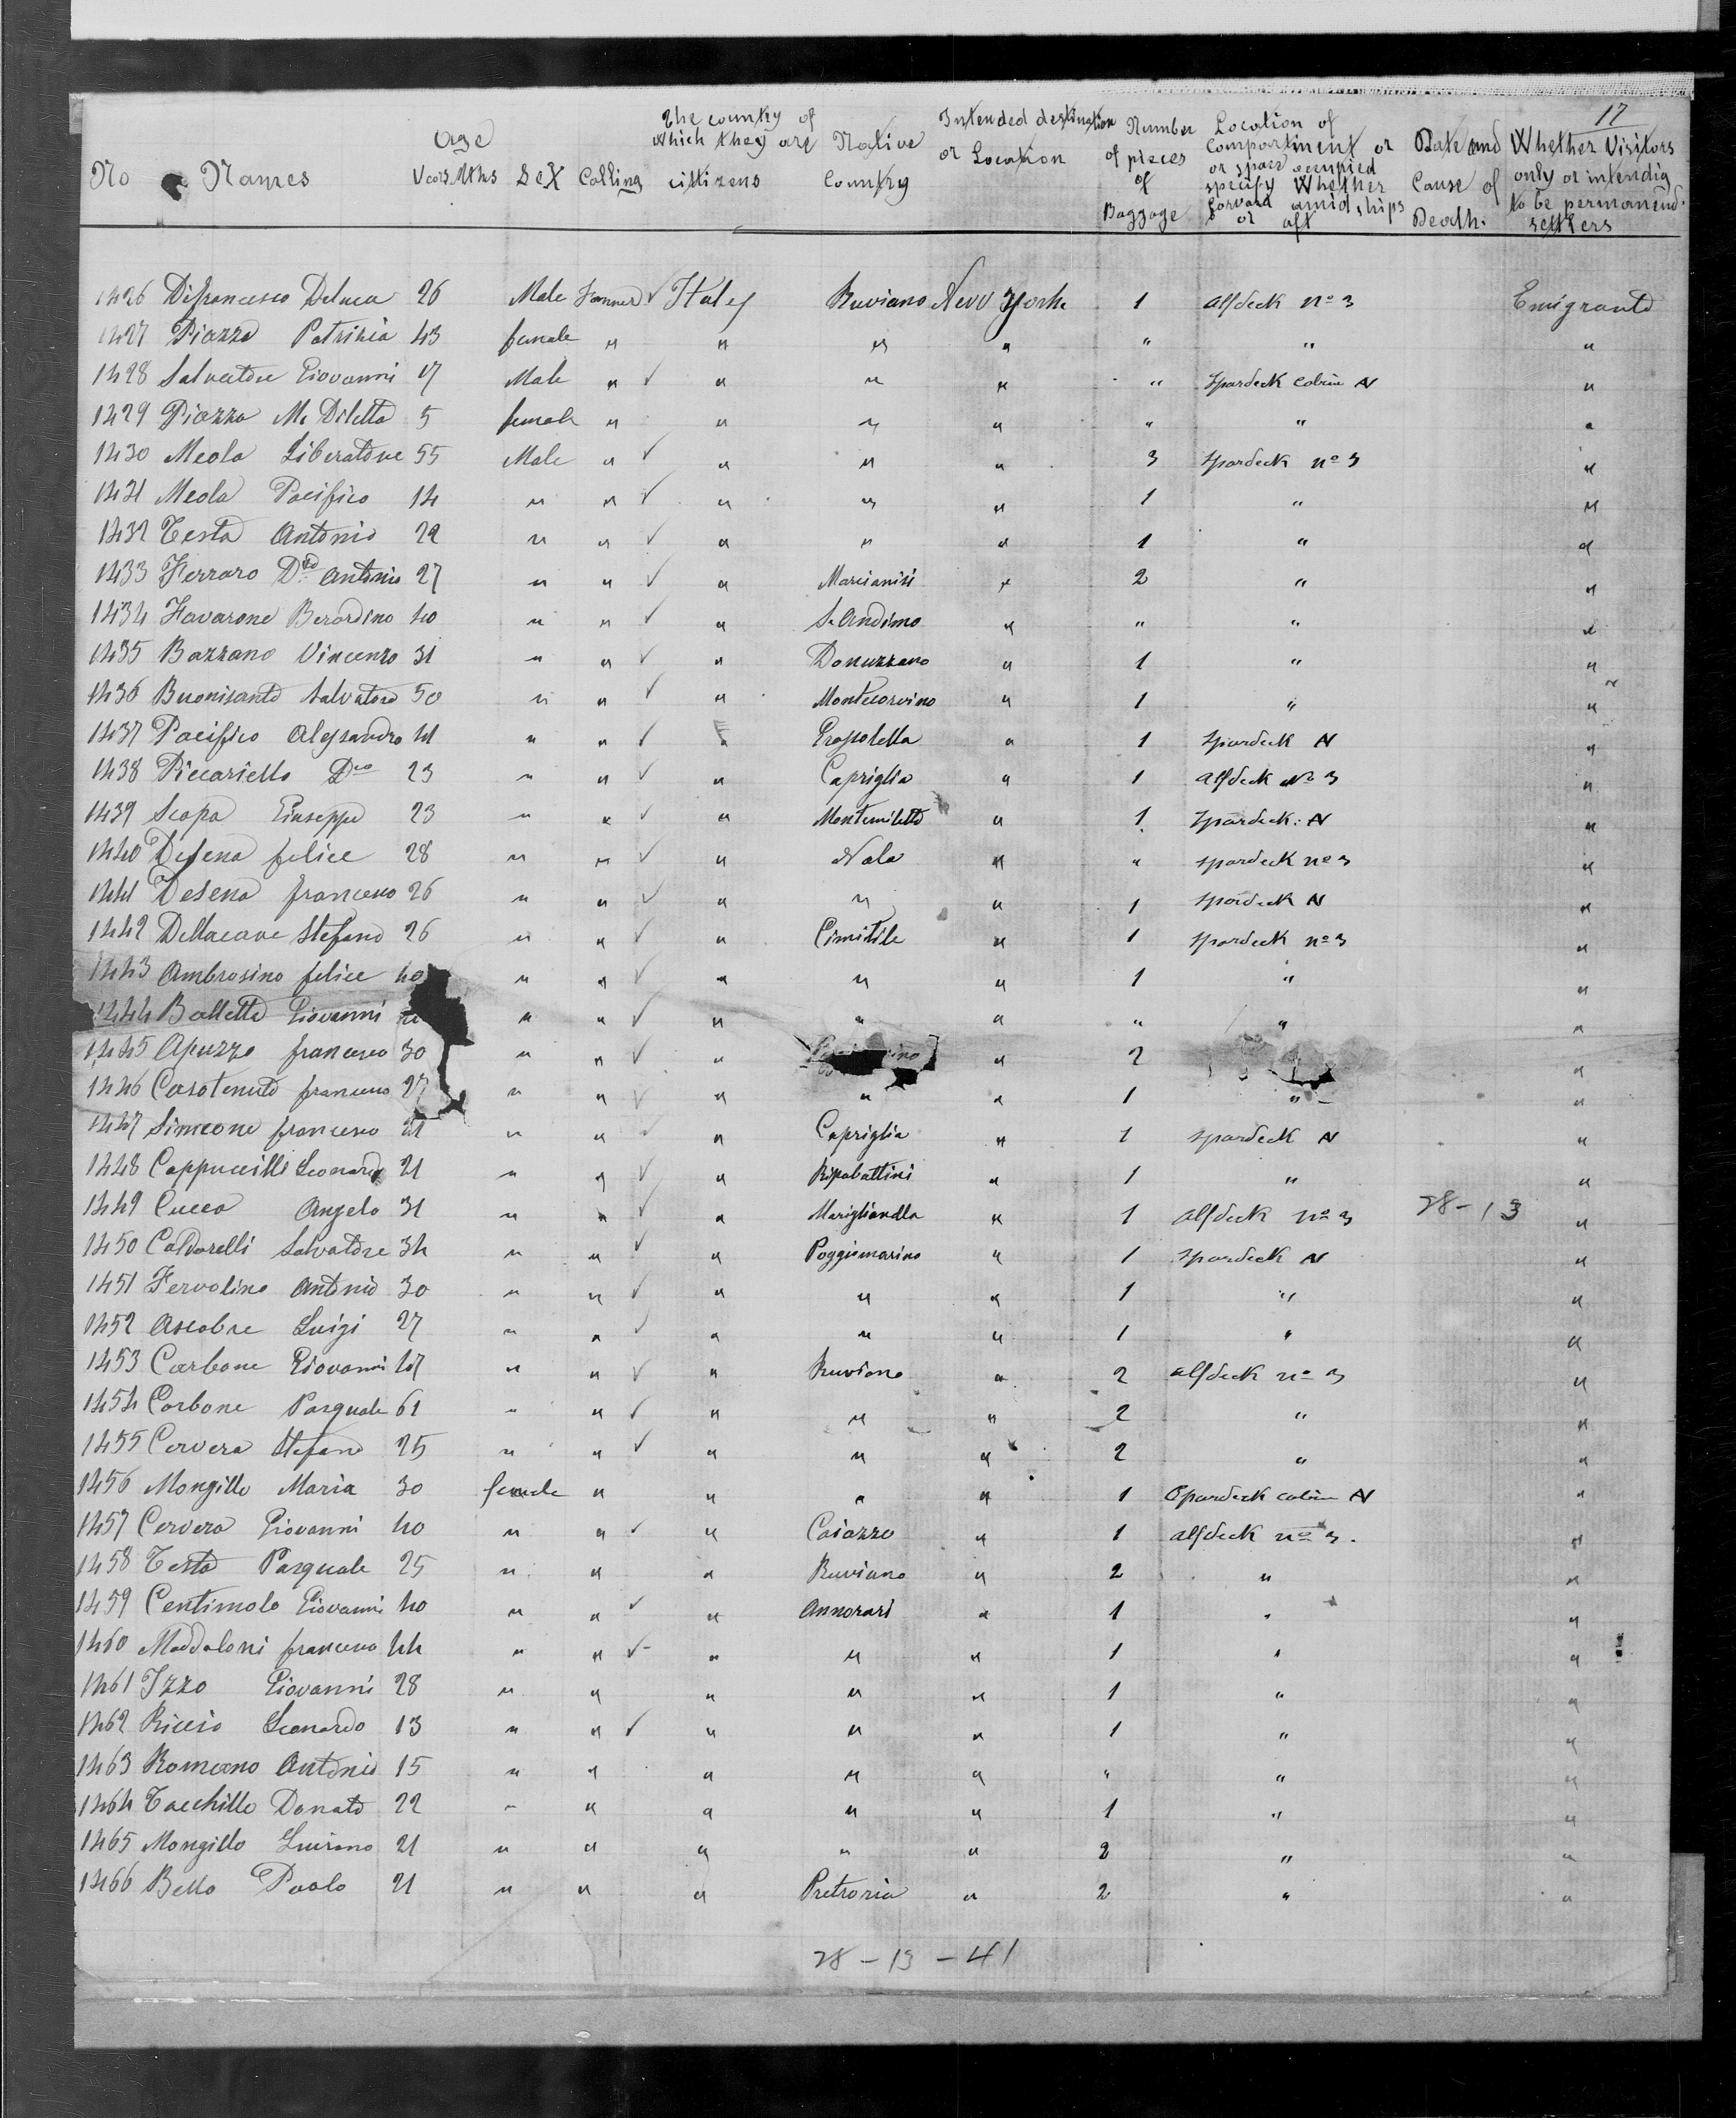 17
No Names Age Years Mths Sex Calling The country of which they are citizens Native Country Intended destination or Location Number of pieces of Baggage Location of compartment or or space occupied specify Whether forward amidships or aft Date and Cause of Death. Whether Visitors only or intendig to be permanend settlers
1426 Difrancesco Deluca 26 Male Farmer ✓ Italy Ruviano New York 1 alfdeck no 3 Emigrantd
1427 Piazza Patrizia 43 female " " " " " " "
1428 Salvatore Giovanni 17 Male " ✓ " " " " Spardeck cabin N "
1429 Piazza M. Diletta 5 female " " " " " " "
1430 Meola Liberatore 55 Male " ✓ " " " 3 Spardeck no 3 "
1431 Meola Pacifico 14 " " ✓ " " " 1 " "
1432 Testa Antonio 22 " " ✓ " " " 1 " "
1433 Ferraro Antonio 27 " " ✓ " Marcianisi " 2 " "
1434 Favarone Berardino 40 " " ✓ " " " " "
1435 Bazzano Vincenzo 31 " " ✓ " Donuzzano " 1 " "
1436 Buonisanto Salvatore 50 " " ✓ " Montecorvino " 1 " "
1437 Pacifico Alessandro 41 " " ✓ " " 1 Spardeck N "
1438 Piccariello Dco 23 " " ✓ " Capriglia " 1 alfdeck No 3 "
1439 Scapa Giuseppe 23 " " ✓ " Montemiletto " 1 Spardeck: N "
1440 Desena felice 28 " " ✓ " Nola " " spardeck no 3 "
1441 Desena francesco 26 " " ✓ " " " 1 spardeck N "
1442 Dellacave Stefano 26 " " ✓ " Cimitile " 1 spardeck no 3 "
1443 Ambrosino felice 40 " " ✓ " " " 1 " "
1444 Balletta Giovanni " " ✓ " " " " " "
1445 Apuzzo francesco 30 " " ✓ " " 2 "
1446 Casotenuto francesco 27 " " ✓ " " " 1 " "
1447 Simeone francesco 21 " " ✓ " Capriglia " 1 spardeck N "
1448 Cappuccilli Leonardo 21 " " ✓ " Ripabottini " 1 " "
1449 Cucca Angelo 31 " " ✓ " Mariglianella " 1 alfdeck no 3 28-13 "
1450 Caldarelli Salvatore 34 " " ✓ " Poggiomarino " 1 spardeck N "
1451 Fervolino Antonio 30 " " ✓ " " " 1 " "
1452 Ascolre Luigi 27 " " ✓ " " " 1 " "
1453 Carbone Giovanni 47 " " ✓ " Ruviano " 2 alfdeck no 3 "
1454 Carbone Pasquale 61 " " ✓ " " " 2 " "
1455 Cervera Stefano 25 " " ✓ " " " 2 " "
1456 Mongillo Maria 30 female " " " " 1 Spardeck cabin N "
1457 Cervera Giovanni 40 " " ✓ " Caiazzo " 1 alfdeck no 3. "
1458 Testa Pasquale 25 " " " Ruviano " 2 " "
1459 Centimolo Giovanni 40 " " ✓ " Annorari " 1 " "
1460 Maddaloni francesco 44 " " ✓ " " " 1 " "
1461 Izzo Giovanni 28 " " " " " 1 " "
1462 Riccio Leonardo 13 " " ✓ " " " 1 " "
1463 Romano Antonio 15 " " " " " " " "
1464 Tacchillo Donato 22 " " " " " 1 " "
1465 Mongillo Luciano 21 " " " " " 2 " "
1466 Bello Paolo 21 " " " Pretroria " 2 " "
28-13-41